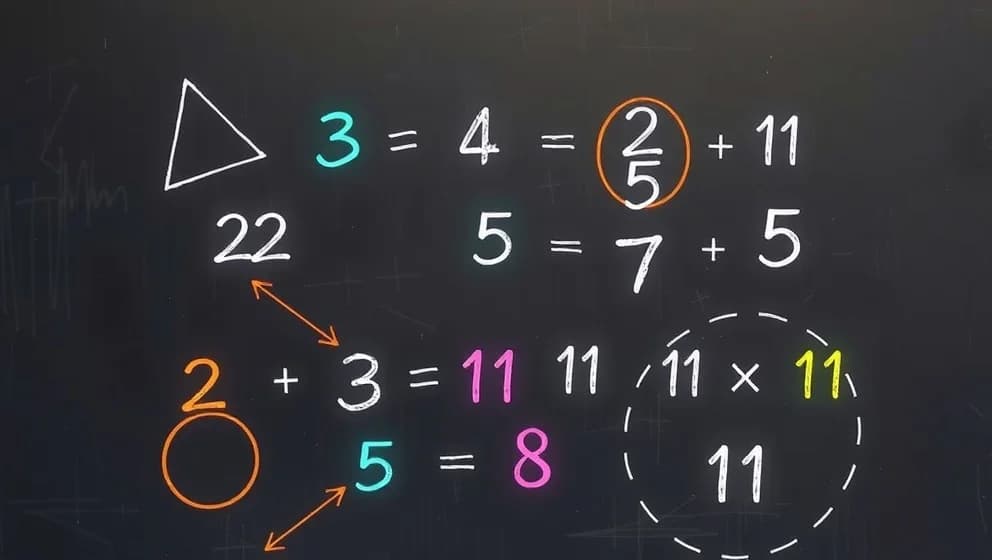 3 = 4 = 2 + 11
5
22 5 = 7 + 5
2 + 3 = 11 11 11 × 11
5 = 8 11